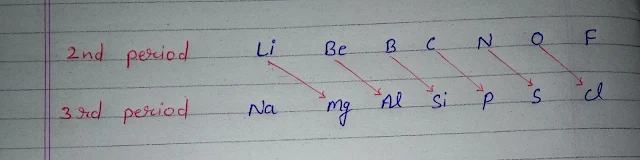 2nd period Li Be B C N O F
3rd period Na Mg Al Si P S Cl